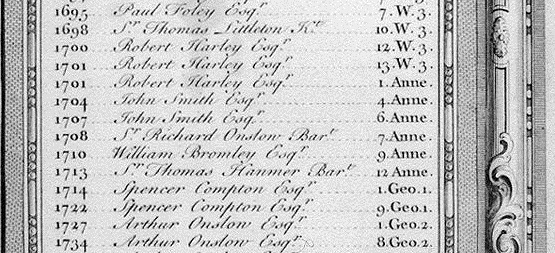 1695 Paul Foley Esqr. 7.W.3.
1698 Sr. Thomas Littleton Kt. 10.W.3.
1700 Robert Harley Esqr. 12.W.3.
1701 Robert Harley Esqr. 13.W.3.
1701 Robert Harley Esqr. 1.Anne.
1704 John Smith Esqr. 4.Anne.
1707 John Smith Esqr. 6.Anne.
1708 Sr. Richard Onslow Bart. 7.Anne.
1710 William Bromley Esqr. 9.Anne.
1713 Sr. Thomas Hanmer Bart. 12 Anne.
1714 Spencer Compton Esqr. 1.Geo.1.
1722 Spencer Compton Esqr. 9.Geo.1.
1727 Arthur Onslow Esqr. 1.Geo.2.
1734 Arthur Onslow Esqr. 8.Geo.2.